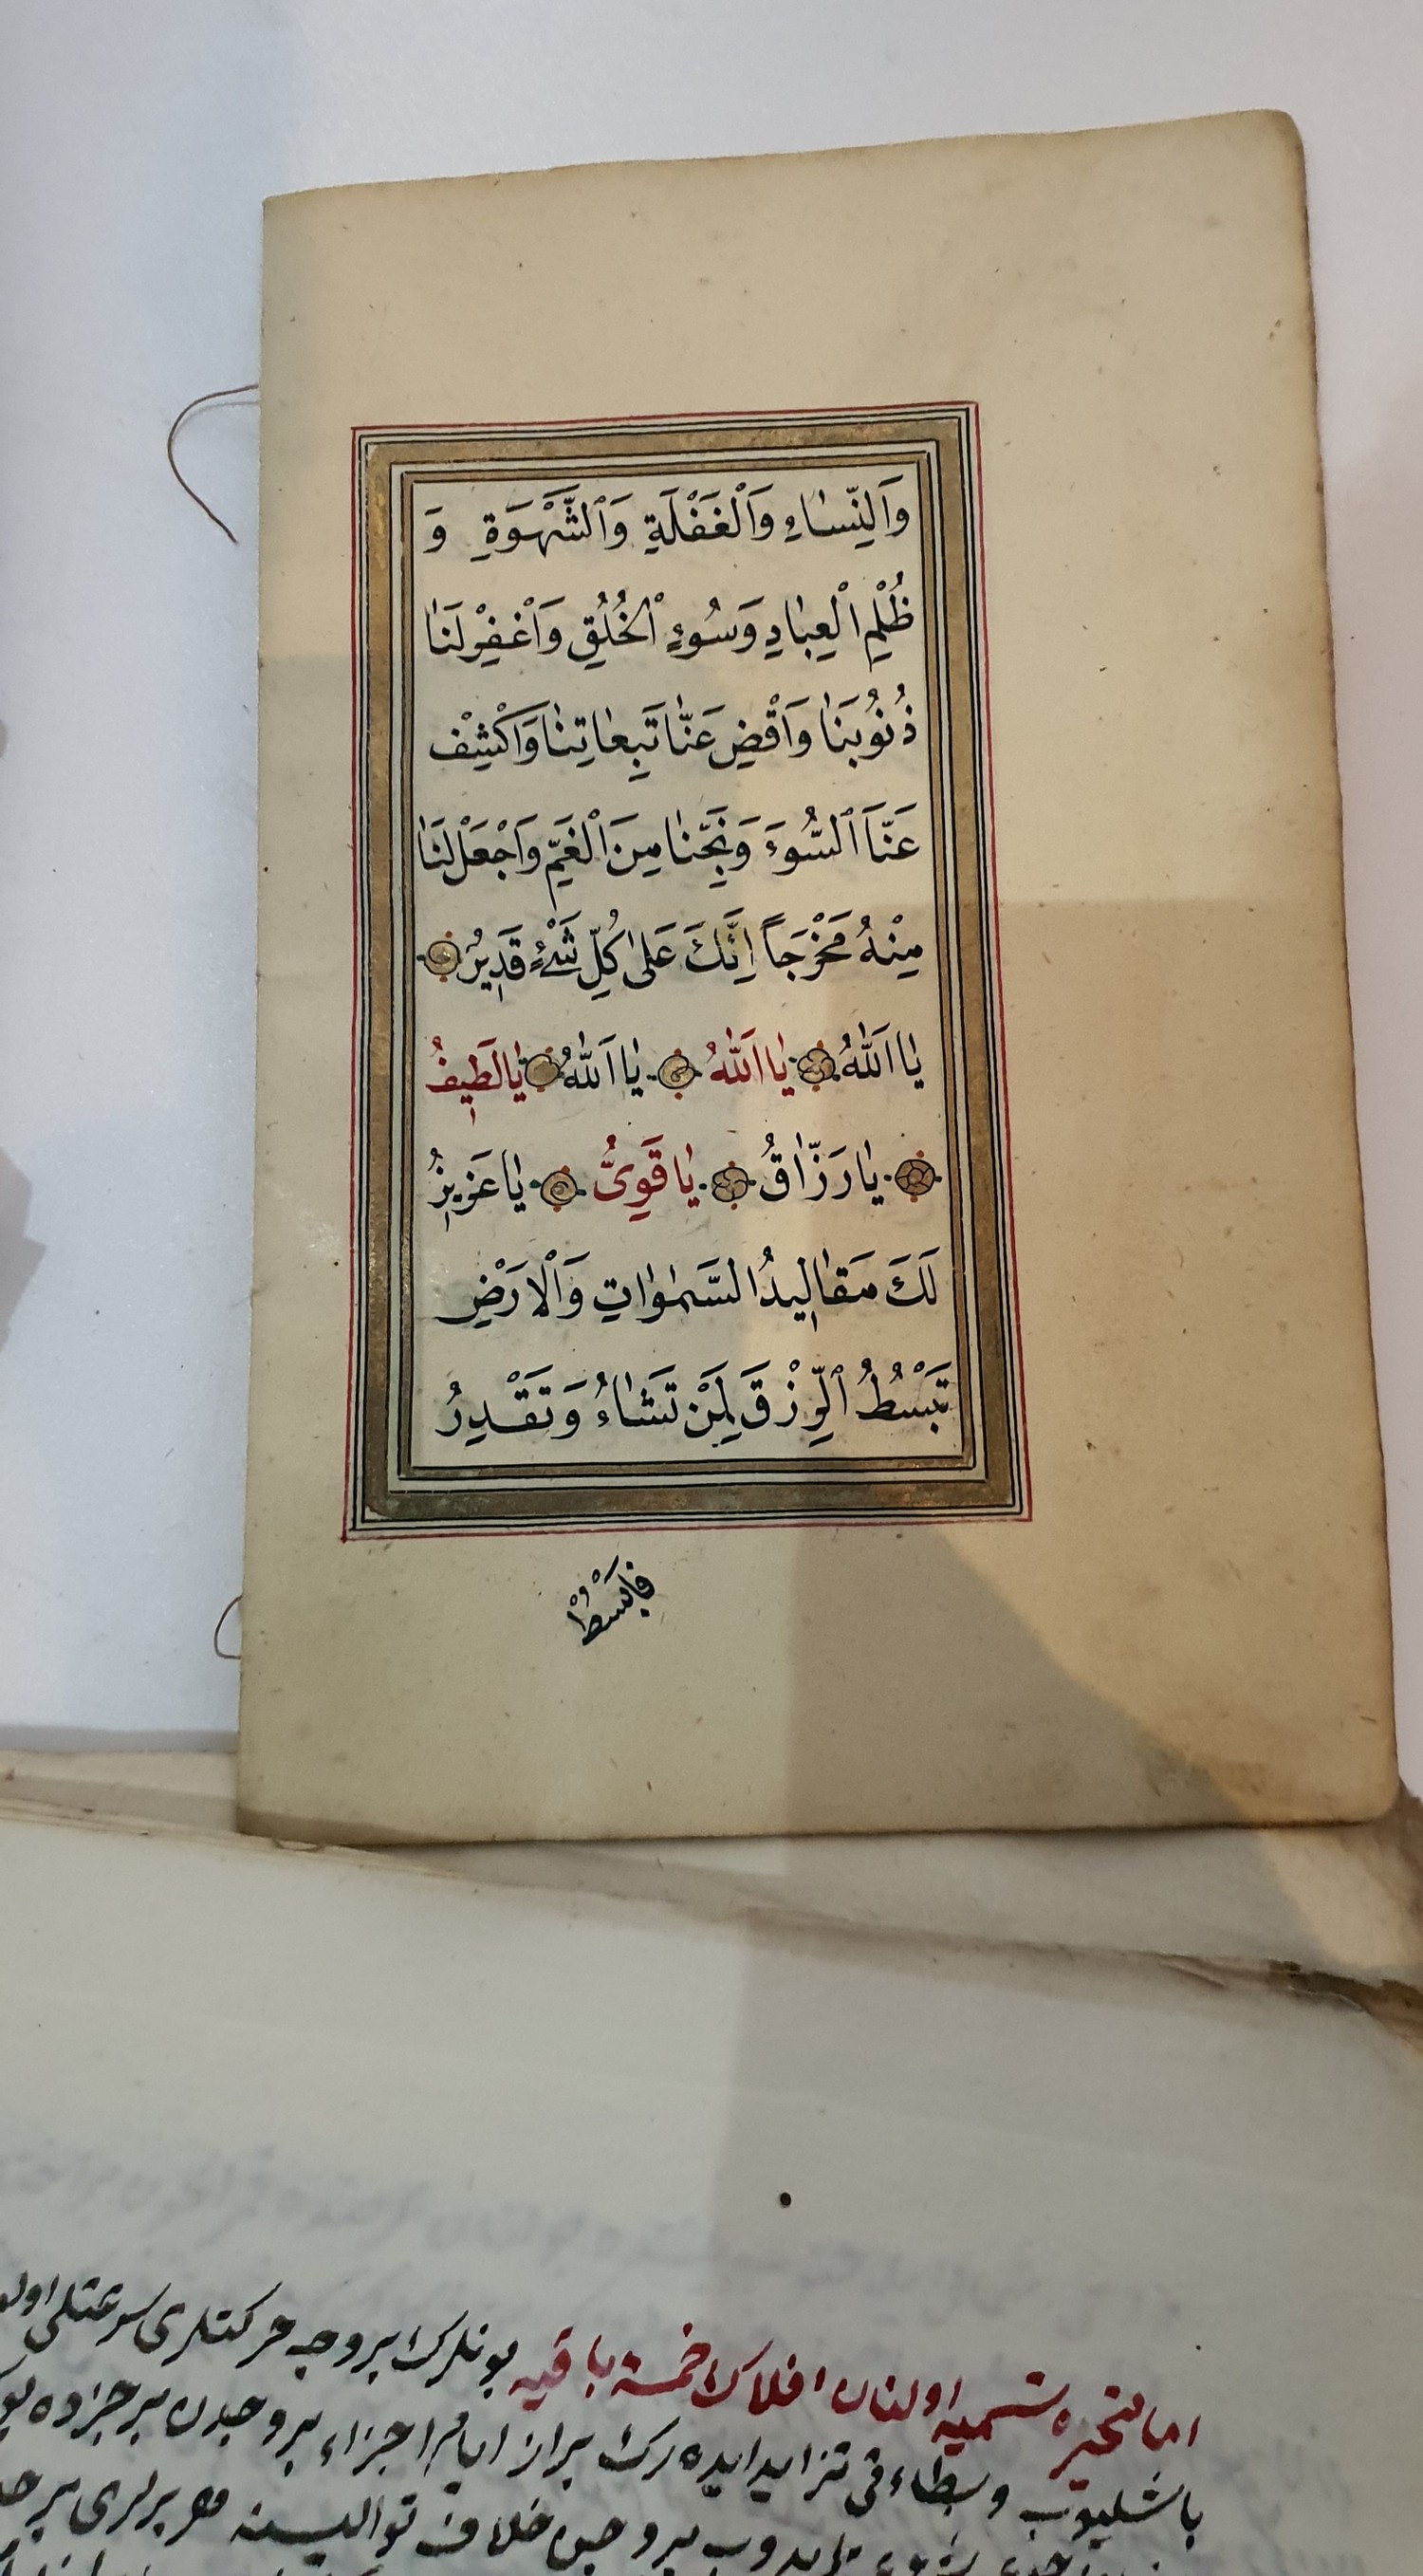 وَالنِّسَاءِ وَالْغَفْلَةِ وَالشَّهْوَةِ وَ
ظُلْمِ الْعِبَادِ وَسُوءِ الْخُلُقِ وَاغْفِرْ لَنَا
ذُنُوبَنَا وَاقْضِ عَنَّا تَبِعَاتِنَا وَاكْشِفْ
عَنَّا السُّوءَ وَنَجِّنَا مِنَ الْغَمِّ وَاجْعَلْ لَنَا
مِنْهُ مَخْرَجاً اِنَّكَ عَلٰى كُلِّ شَىْءٍ قَدِيرٌ
يَا اَللّٰهُ يَا اَللّٰهُ يَا اَللّٰهُ يَا لَطِيفُ
يَا رَزَّاقُ يَا قَوِىُّ يَا عَزِيزُ
لَكَ مَقَالِيدُ السَّمٰوَاتِ وَالْاَرْضِ
تَبْسُطُ الرِّزْقَ لِمَنْ تَشَاءُ وَتَقْدِرُ
فَابْسُطْ
اما متحیره تسمیه اولنان افلاك خمسۀ باقیه بونلرك بروجه حركتلری سرعتلی
باشلیوب وبطاءتی تزاید ایده رك براز ایام اجزاء بروجدن بر جزوده
بروجن خلاف توالیسنه بربری